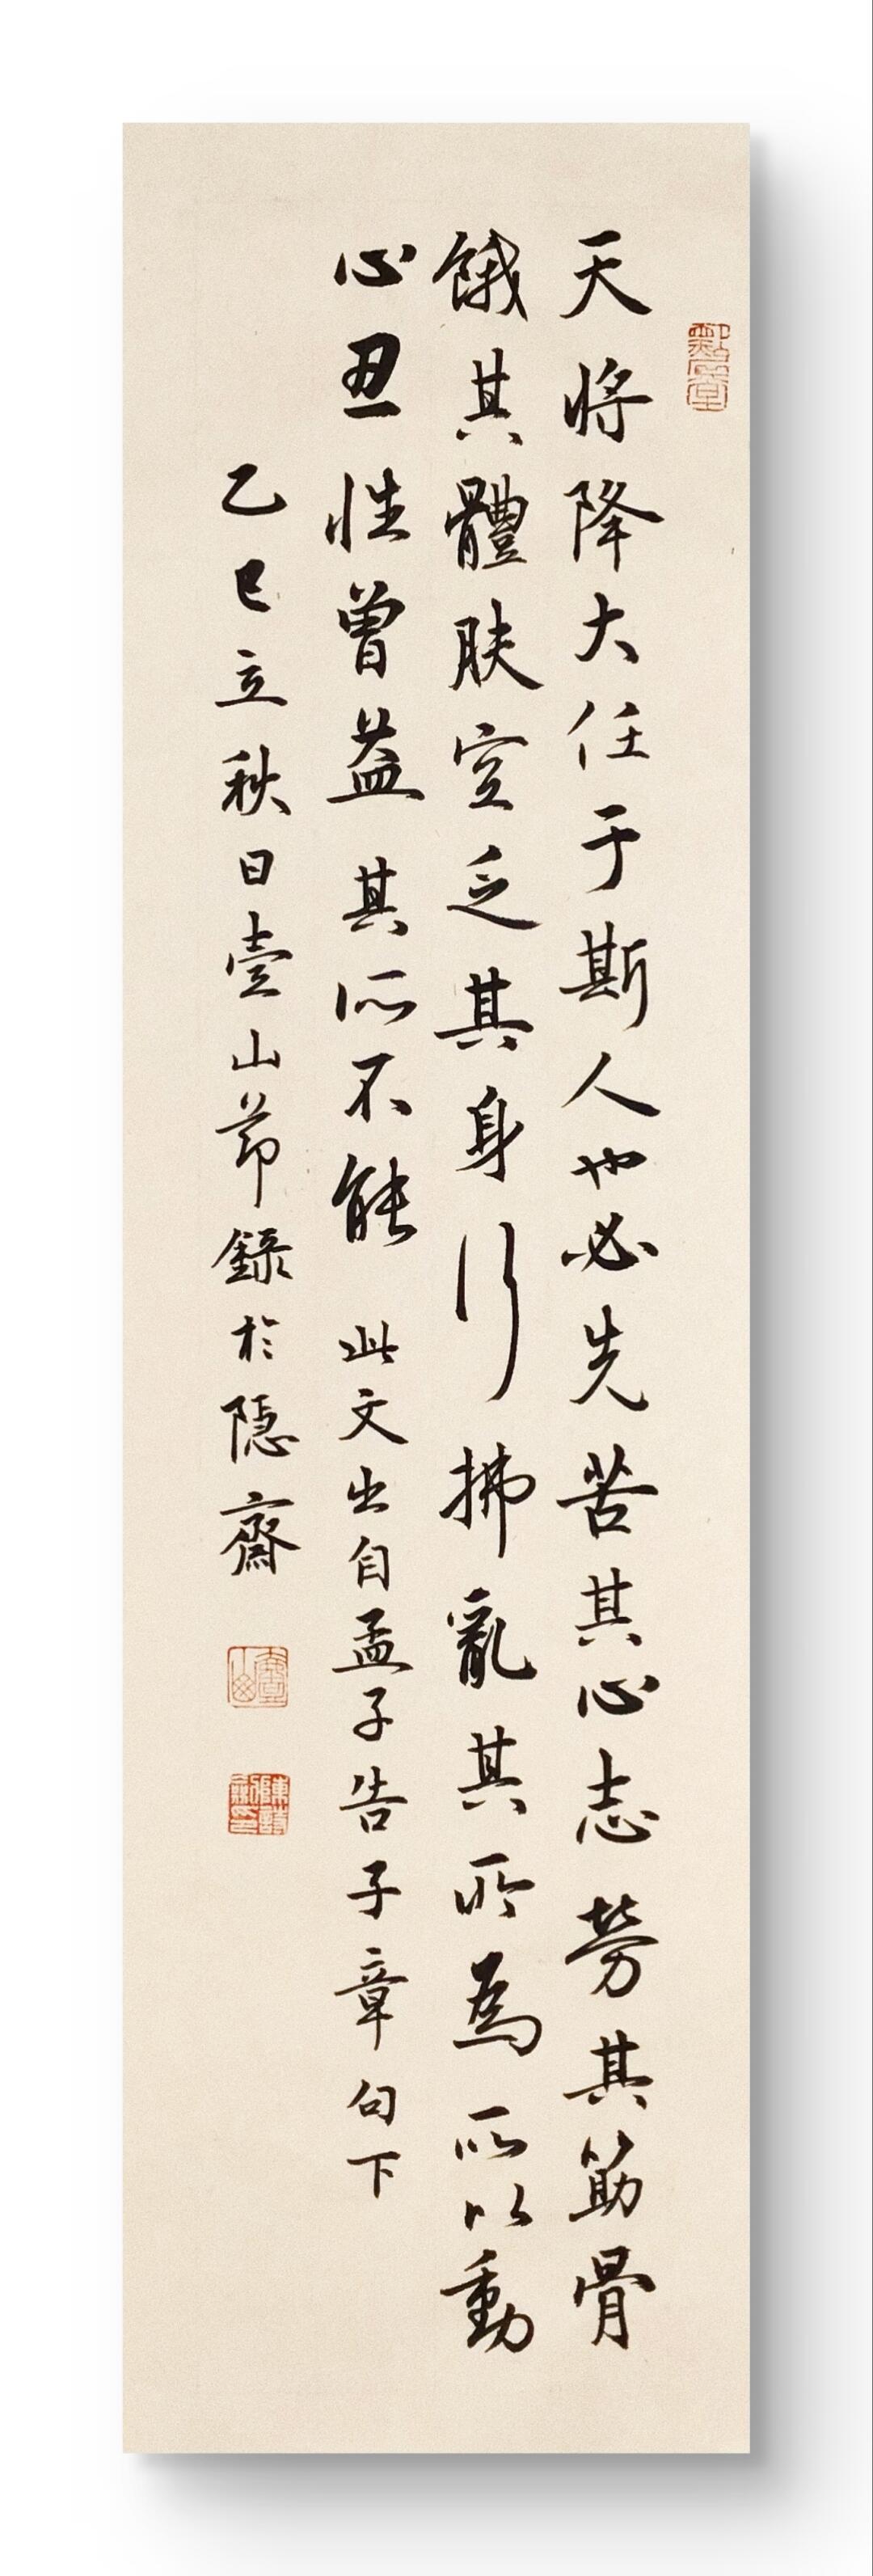 天将降大任于斯人也必先苦其心志劳其筋骨
餓其體肤空乏其身行拂亂其所為所以動
心忍性曾益其所不能 此文出自孟子告子章句下
乙巳立秋日壹山莭錄於隐齋